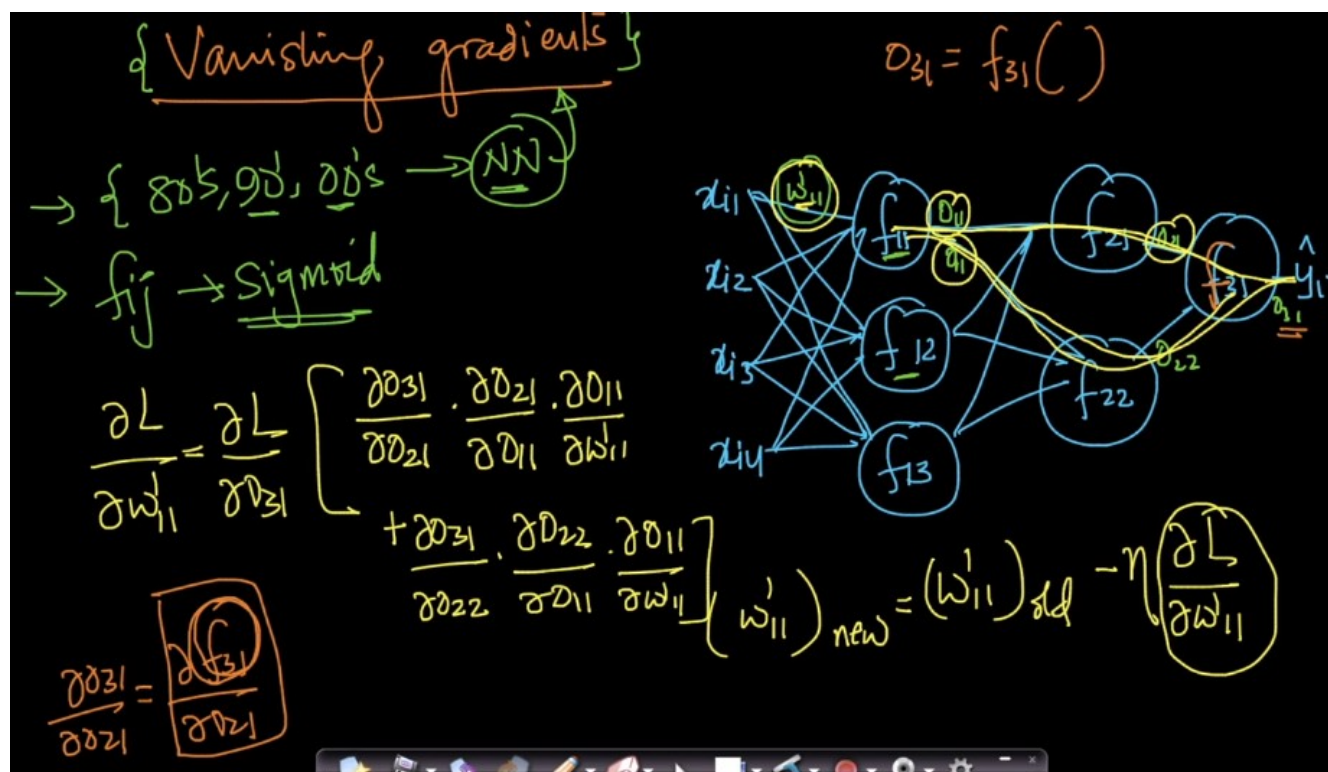 { Vanishing gradients }
O31 = f31( )
→ { 80's, 90', 00's → NN
→ fij → Sigmoid
xi1
xi2
xi3
xi4
w'11
f11
f12
f13
O11
O11
f21
f22
O21
O22
f31
O31
ŷi
∂L/∂w'11 = ∂L/∂O31 [ ∂O31/∂O21 . ∂O21/∂O11 . ∂O11/∂w'11
+ ∂O31/∂O22 . ∂O22/∂O11 . ∂O11/∂w'11 ]
(w'11)new = (w'11)old - η ∂L/∂w'11
∂O31/∂O21 = ∂f31/∂O21